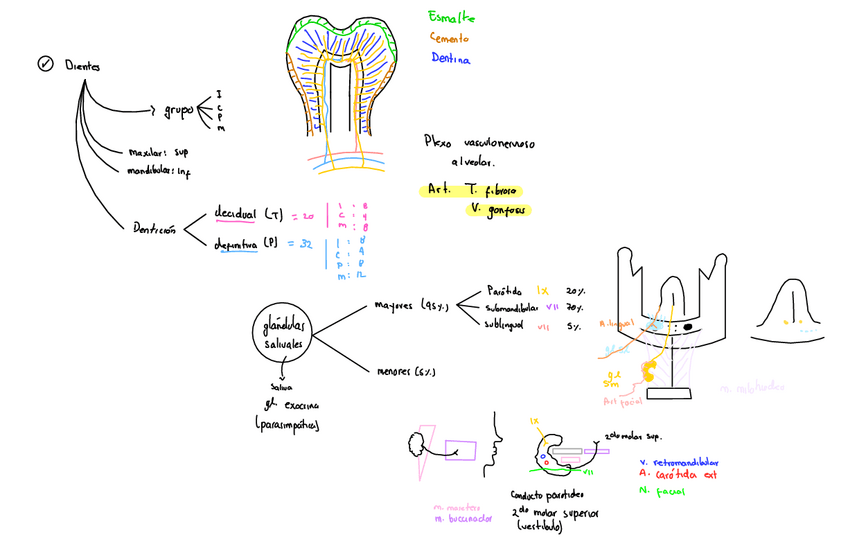 Esmalte
Cemento
Dentina
Dientes
grupo
I
C
P
M
maxilar: sup
mandibular: inf
Plexo vasculonervioso
alveolar.
Art. T. fibrosa
V. gonfosis
Dentición
decidual (T) = 20
I : 8
C : 4
m : 8
definitiva (P) = 32
I : 8
C : 4
P : 8
m : 12
glándulas
salivales
mayores (95%)
Parótida IX 20%
submandibular VII 70%
sublingual VII 5%
menores (5%)
saliva
gl. exocrina
(parasimpática)
A. lingual
gl
sm
Art facial
m. milohioideo
IX
2do molar sup.
VII
v. retromandibular
A. carótida ext
N. facial
m. masetero
m. buccinador
Conducto parotídeo
2do molar superior
(vestíbulo)